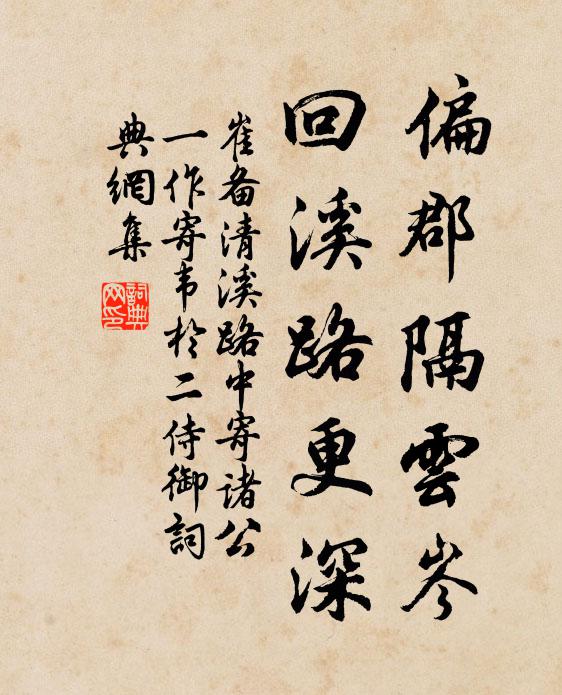 偏郡隔雲岑
回溪路更深
崔备清溪路中寄诸公
一作寄韦於二侍御詞
典網集
詞典
网印